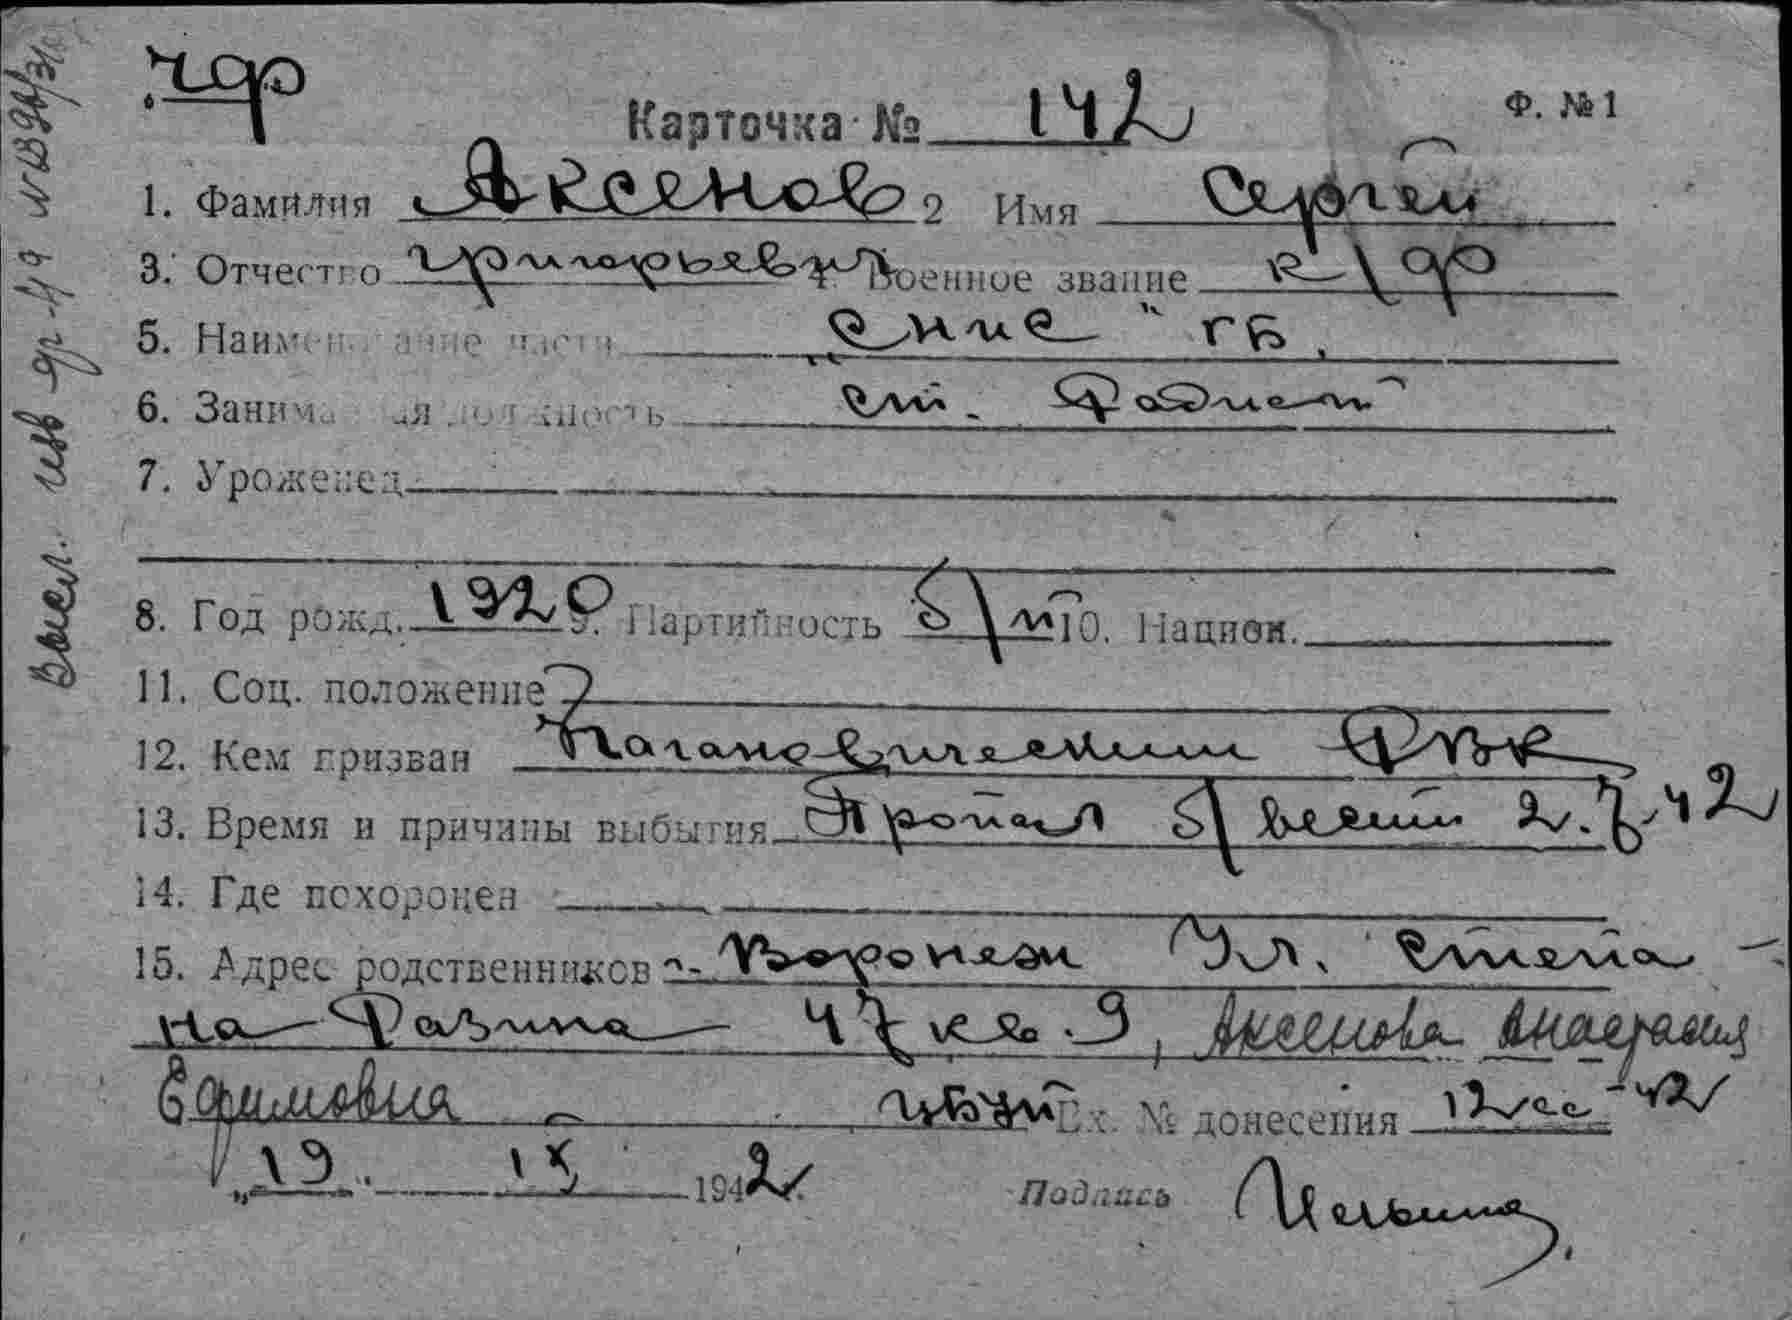 кр
Карточка № 142
Ф. №1
1. Фамилия Аксенов 2 Имя Сергей
3. Отчество Григорьевич Военное звание к/ф
5. Наименование части „Снис" ГБ.
6. Занимаемая должность ст. Радист
7. Уроженец
8. Год рожд. 1920 9. Партийность б/п 10. Национ.
11. Соц. положение
12. Кем призван Кагановическим РВК
13. Время и причины выбытия Пропал б/вести 2.7.42
14. Где похоронен
15. Адрес родственников г. Воронеж Ул. Степа-
на-Разина 47 кв. 9, Аксенова Анастасия
Ефимовна Вх. № донесения 12сс-42
„19" IX 1942
Подпись
Высл. изв